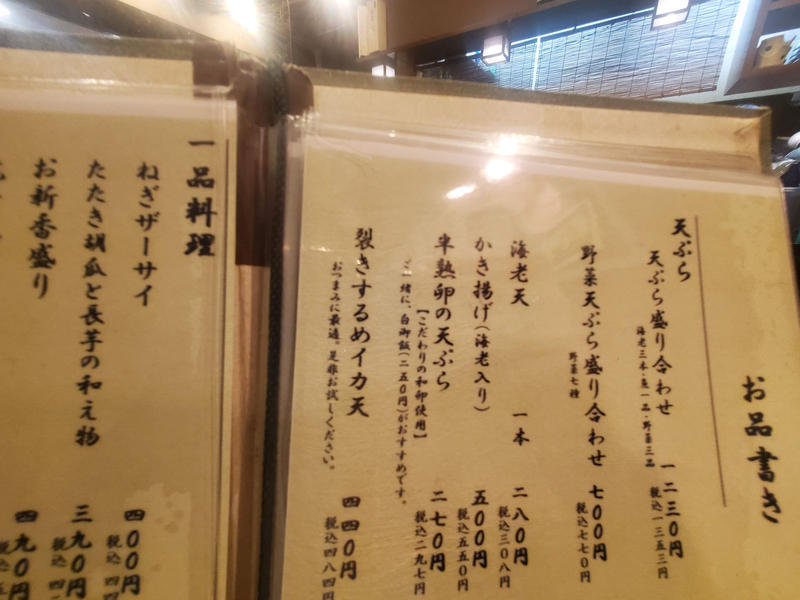 お品書き
天ぷら
天ぷら盛り合わせ 一二三〇円
海老三本・魚一品・野菜三品 税込一三五三円
野菜天ぷら盛り合わせ 七〇〇円
野菜七種 税込七七〇円
海老天 一本 二八〇円
税込三〇八円
かき揚げ(海老入り) 五〇〇円
税込五五〇円
半熟卵の天ぷら 二七〇円
【こだわりの和卵使用】 税込二九七円
ご一緒に、白御飯(二五〇円)がおすすめです。
裂きするめイカ天 四四〇円
おつまみに最適。是非お試しください。 税込四八四円
一品料理
ねぎザーサイ 四〇〇円
税込
たたき胡瓜と長芋の和え物 三九〇円
税込
お新香盛り 四九〇円
税込